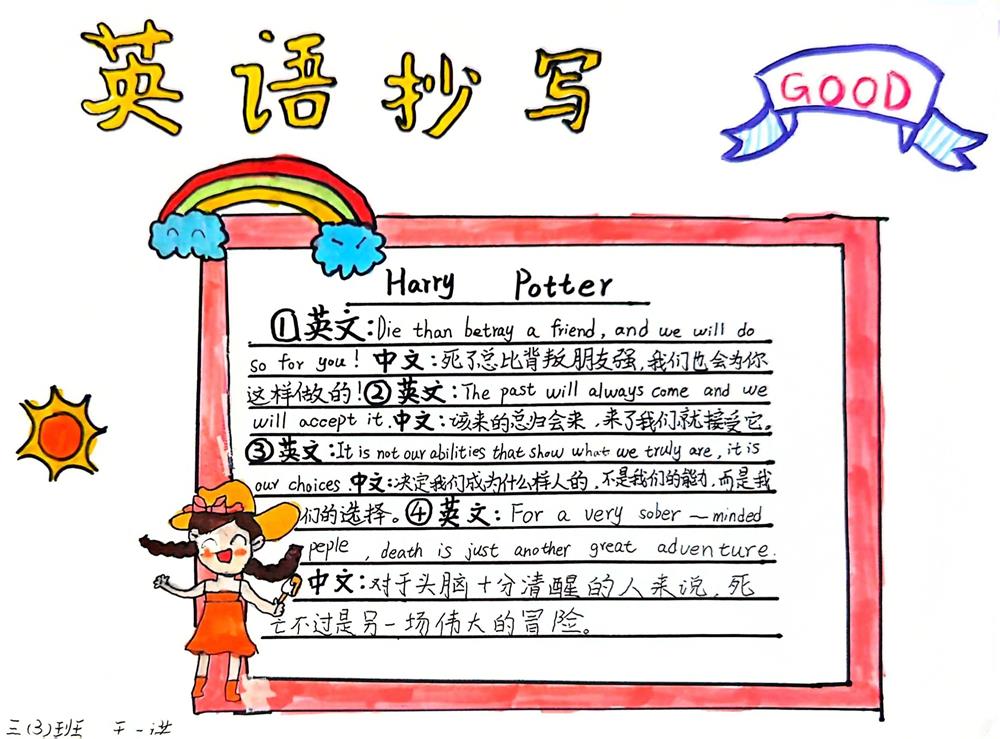 英语抄写
GOOD
Harry Potter
①英文:Die than betray a friend, and we will do
so for you! 中文:死了总比背叛朋友强,我们也会为你
这样做的!②英文:The past will always come and we
will accept it.中文:该来的总归会来,来了我们就接受它。
③英文:It is not our abilities that show what we truly are, it is
our choices.中文:决定我们成为什么样人的,不是我们的能力,而是我
们的选择。④英文:For a very sober-minded
peple, death is just another great adventure.
中文:对于头脑十分清醒的人来说,死
亡不过是另一场伟大的冒险。
三(3)班